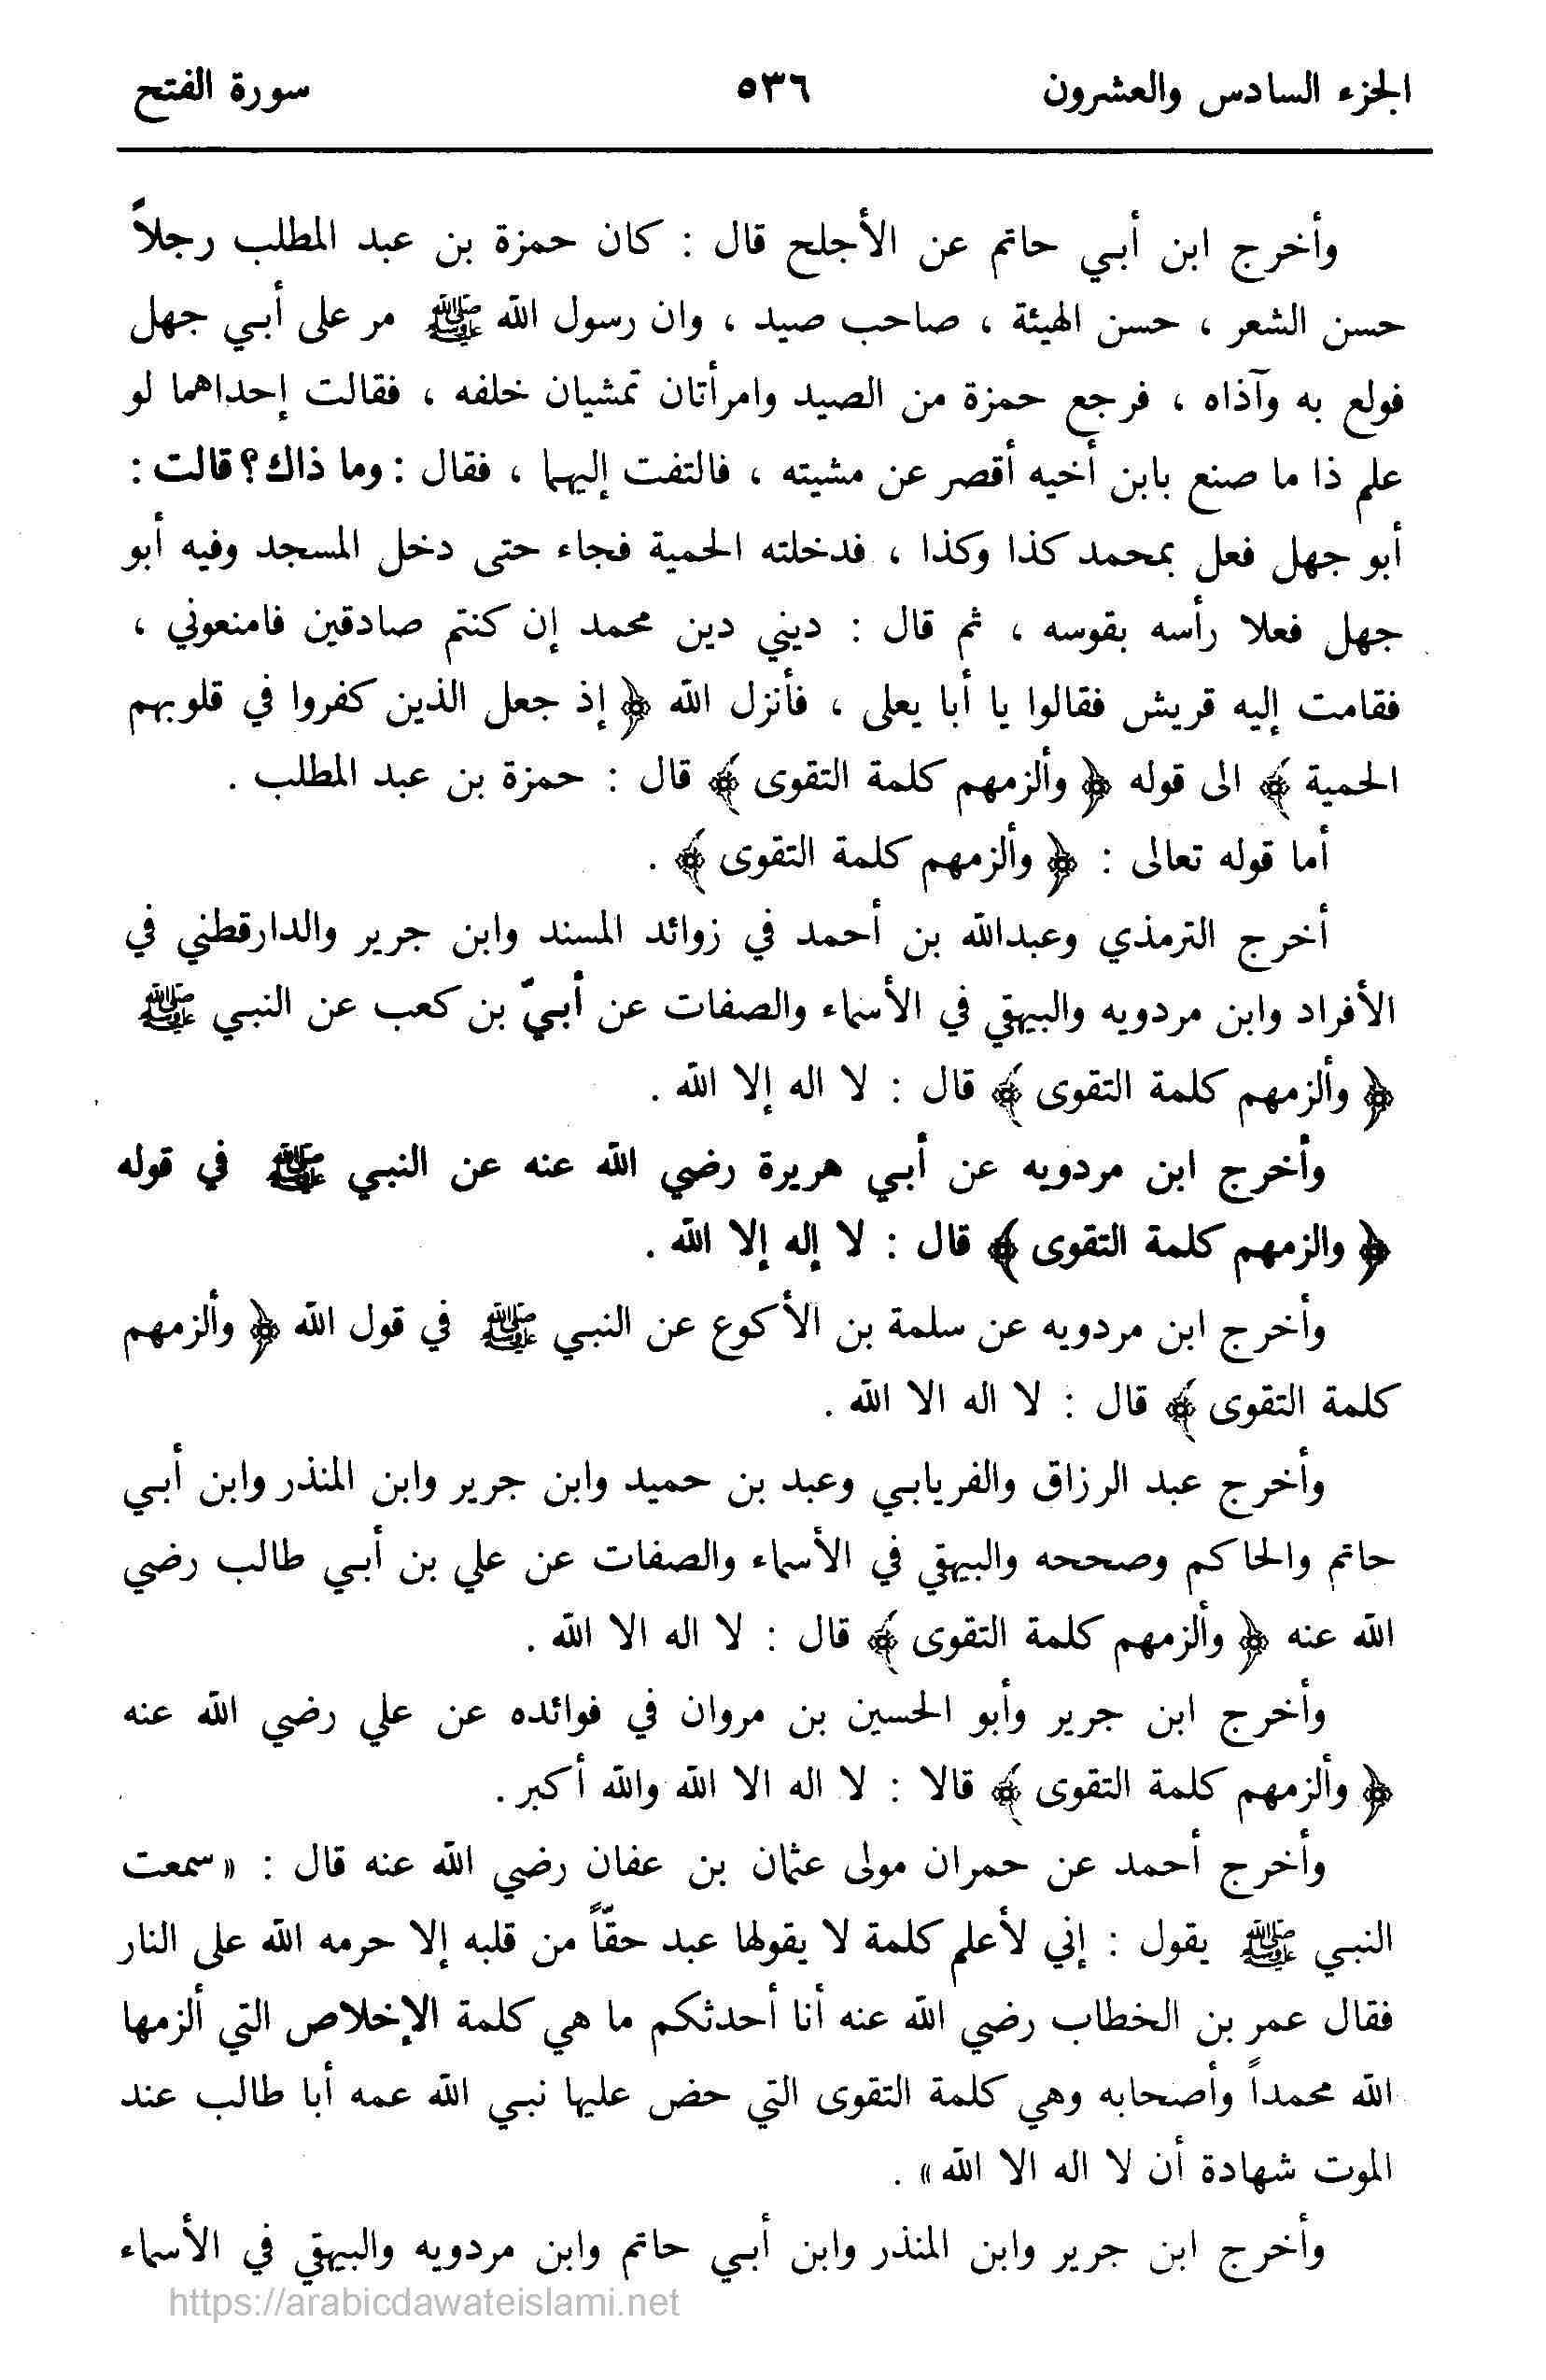 الجزء السادس والعشرون ٥٣٦ سورة الفتح
وأخرج ابن أبي حاتم عن الأجلح قال : كان حمزة بن عبد المطلب رجلاً
حسن الشعر ، حسن الهيئة ، صاحب صيد ، وان رسول الله ﷺ مر على أبي جهل
فولع به وآذاه ، فرجع حمزة من الصيد وامرأتان تمشيان خلفه ، فقالت إحداهما لو
علم ذا ما صنع بابن أخيه أقصر عن مشيته ، فالتفت إليهما ، فقال : وما ذاك؟ قالت :
أبو جهل فعل بمحمد كذا وكذا ، فدخلته الحمية فجاء حتى دخل المسجد وفيه أبو
جهل فعلا رأسه بقوسه ، ثم قال : ديني دين محمد إن كنتم صادقين فامنعوني ،
فقامت إليه قريش فقالوا يا أبا يعلى ، فأنزل الله ﴿ إذ جعل الذين كفروا في قلوبهم
الحمية ﴾ الى قوله ﴿ وألزمهم كلمة التقوى ﴾ قال : حمزة بن عبد المطلب .
أما قوله تعالى : ﴿ وألزمهم كلمة التقوى ﴾ .
أخرج الترمذي وعبدالله بن أحمد في زوائد المسند وابن جرير والدارقطني في
الأفراد وابن مردويه والبيهقي في الأسماء والصفات عن أبيّ بن كعب عن النبي ﷺ
﴿ وألزمهم كلمة التقوى ﴾ قال : لا اله إلا الله .
وأخرج ابن مردويه عن أبي هريرة رضي الله عنه عن النبي ﷺ في قوله
﴿ والزمهم كلمة التقوى ﴾ قال : لا إله إلا الله .
وأخرج ابن مردويه عن سلمة بن الأكوع عن النبي ﷺ في قول الله ﴿ وألزمهم
كلمة التقوى ﴾ قال : لا اله الا الله .
وأخرج عبد الرزاق والفريابي وعبد بن حميد وابن جرير وابن المنذر وابن أبي
حاتم والحاكم وصححه والبيهقي في الأسماء والصفات عن علي بن أبي طالب رضي
الله عنه ﴿ وألزمهم كلمة التقوى ﴾ قال : لا اله الا الله .
وأخرج ابن جرير وأبو الحسين بن مروان في فوائده عن علي رضي الله عنه
﴿ وألزمهم كلمة التقوى ﴾ قالا : لا اله الا الله والله أكبر .
وأخرج أحمد عن حمران مولى عثمان بن عفان رضي الله عنه قال : « سمعت
النبي ﷺ يقول : إني لأعلم كلمة لا يقولها عبد حقّاً من قلبه إلا حرمه الله على النار
فقال عمر بن الخطاب رضي الله عنه أنا أحدثكم ما هي كلمة الإخلاص التي ألزمها
الله محمداً وأصحابه وهي كلمة التقوى التي حض عليها نبي الله عمه أبا طالب عند
الموت شهادة أن لا اله الا الله » .
وأخرج ابن جرير وابن المنذر وابن أبي حاتم وابن مردويه والبيهقي في الأسماء
https://arabicdawateislami.net